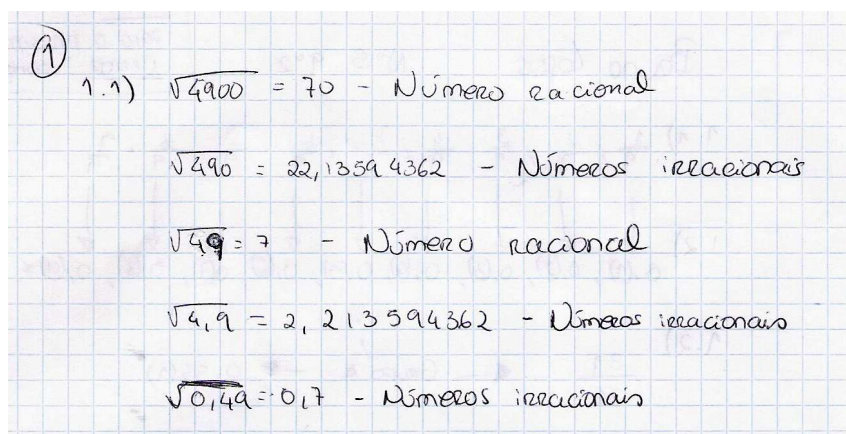 1
1.1) √4900 = 70 - Número racional
√490 = 22,13594362 - Números irracionais
√49 = 7 - Número racional
√4,9 = 2,213594362 - Números irracionais
√0,49 = 0,7 - Números irracionais